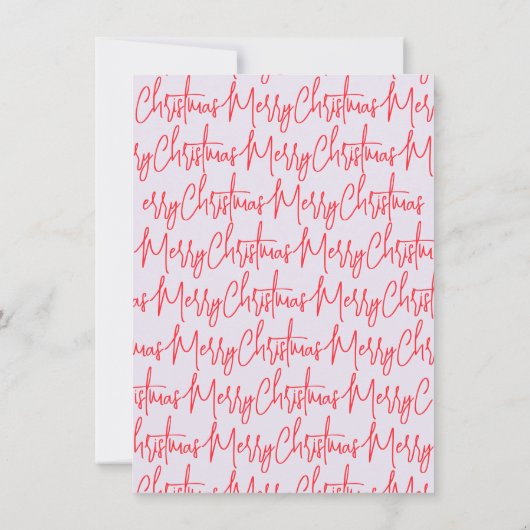 Christmas Merry Christmas Mer
ry Christmas Merry Christmas M
erry Christmas Merry Christmas
Merry Christmas Merry Christ
mas Merry Christmas Merry Chr
mas Merry Christmas Merry C
istmas Merry Christmas Merry C
hristmas Merry Christmas Merry
Christmas Merry Christmas Mer